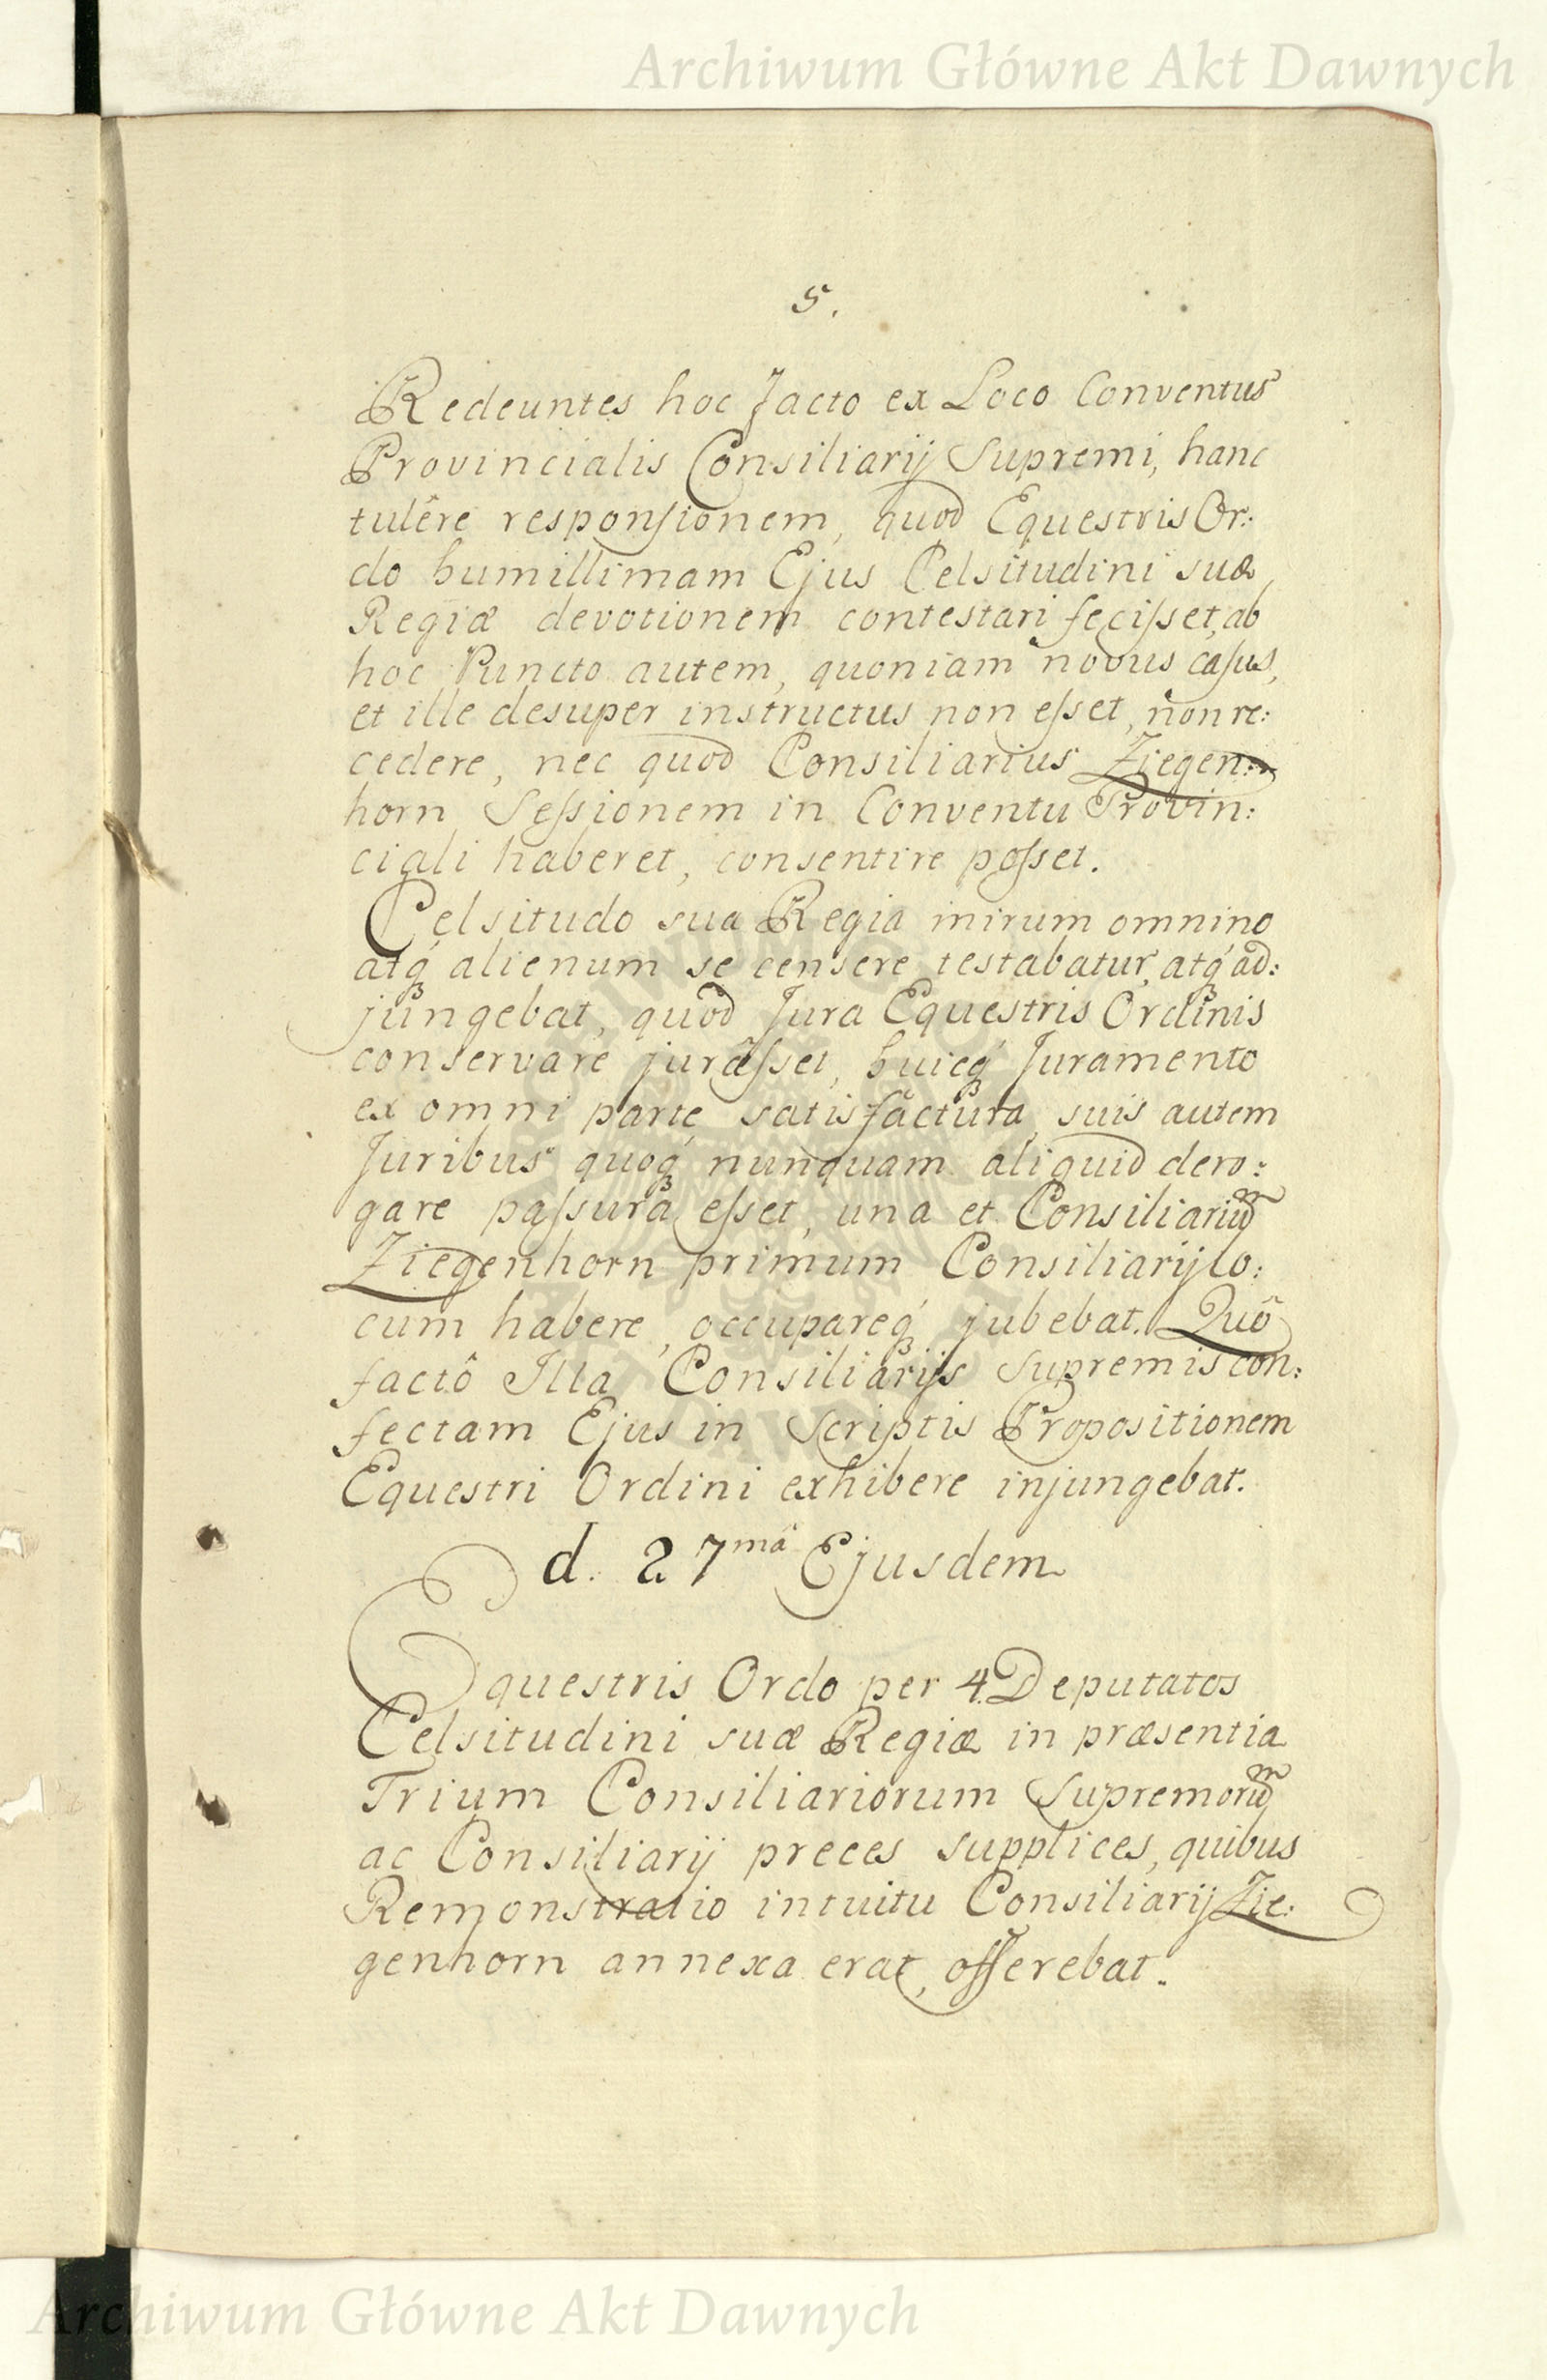 Archiwum Główne Akt Dawnych
5.
Redeuntes hoc facto ex Loco Conventus
Provincialis Consiliarij Supremi, hanc
tulêre responsionem, quod Equestris Or:
do humillimam Ejus Celsitudini suæ
Regiæ devotionem contestari fecisset, ab
hoc Puncto autem, quoniam novus casus,
et ille desuper instructus non esset, non re:
cedere, nec quod Consiliarius Ziegen:
horn Sessionem in Conventu Provin:
ciali haberet, consentire posset.
Celsitudo sua Regia mirum omnino
atq́ alienum se censere testabatur, atq́ ad:
jungebat, quod Jura Equestris Ordinis
conservare jurâsset, huicq́ Juramento
ex omni parte satisfactura, suis autem
Juribus quoq́ nunquam aliquid dero:
gare passura esset, una et Consiliariū
Ziegenhorn primum Consiliarij lo:
cum habere, occupareq́ jubebat. Quô
factô Illa Consiliarijs Supremis con:
fectam Ejus in Scriptis Propositionem
Equestri Ordini exhibere injungebat.
d. 27mâ Ejusdem
Equestris Ordo per 4. Deputatos
Celsitudini suæ Regiæ in præsentia
Trium Consiliariorum Supremorū
ac Consiliarij preces supplices, quibus
Remonstratio intuitu Consiliarij Zie:
genhorn annexa erat, offerebat.
Archiwum Główne Akt Dawnych